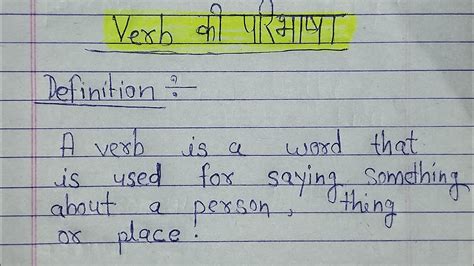 Verb की परिभाषा
Definition :-
A verb is a word that
is used for saying something
about a person, thing
or place.